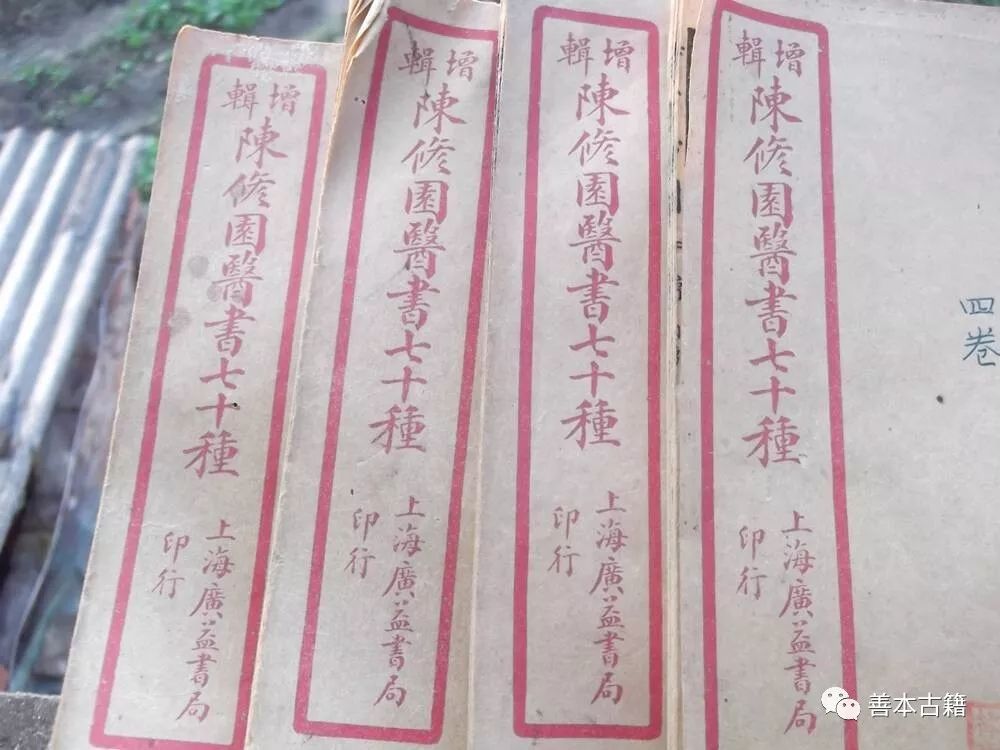 增輯
陳修園醫書七十種
上海廣益書局
印行
增輯
陳修園醫書七十種
上海廣益書局
印行
增輯
陳修園醫書七十種
上海廣益書局
印行
增輯
陳修園醫書七十種
上海廣益書局
印行
四卷
善本古籍